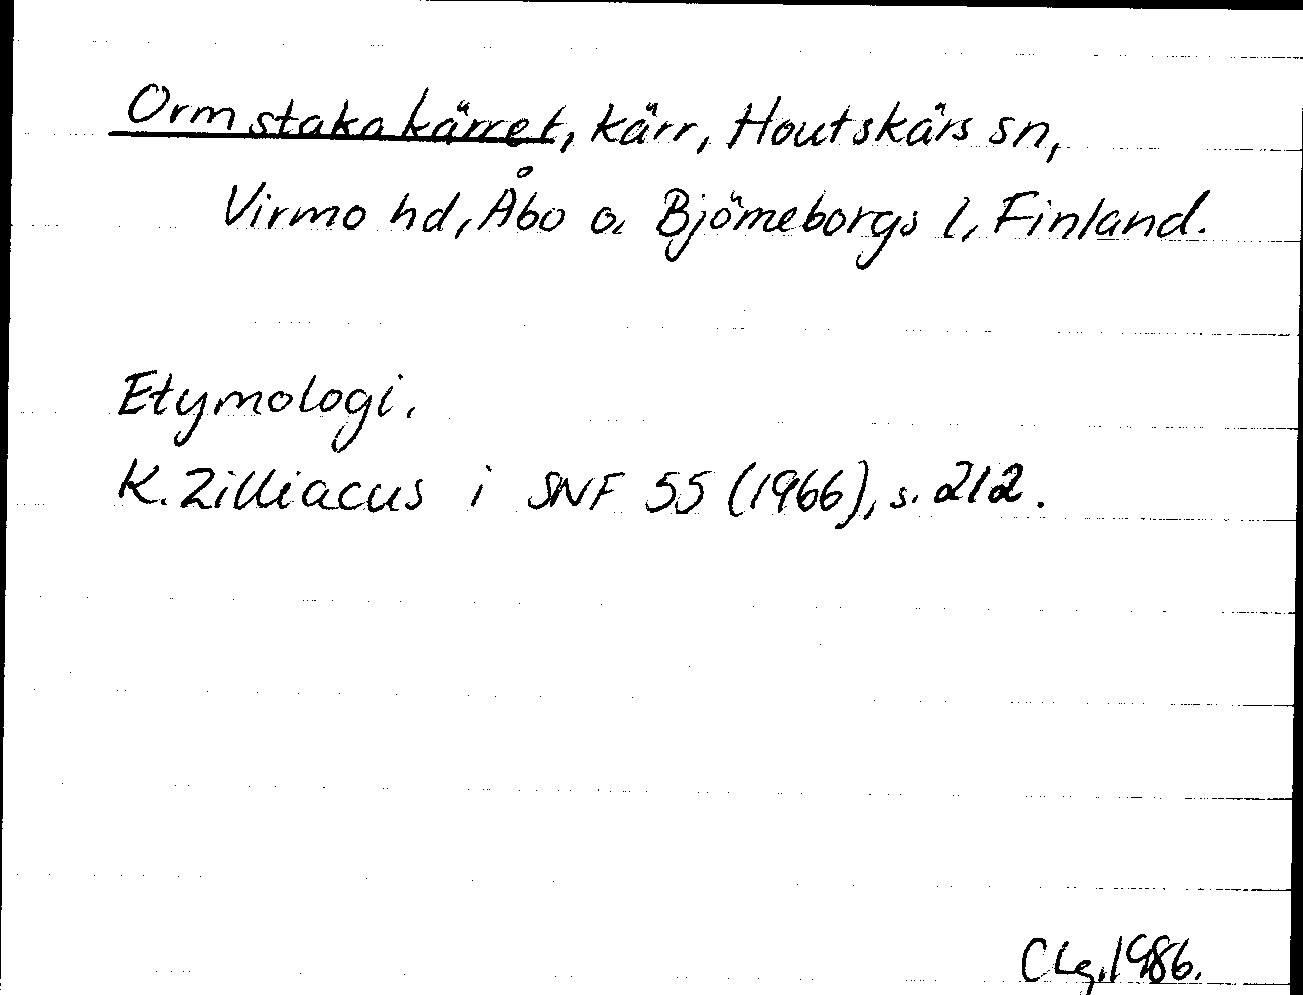 Ormstakakärret, kärr, Houtskärs sn,
Virmo hd, Åbo o. Björneborgs l, Finland.
Etymologi.
K. Zilliacus i SNF 55 (1966), s. 212.
CLg. 1986.